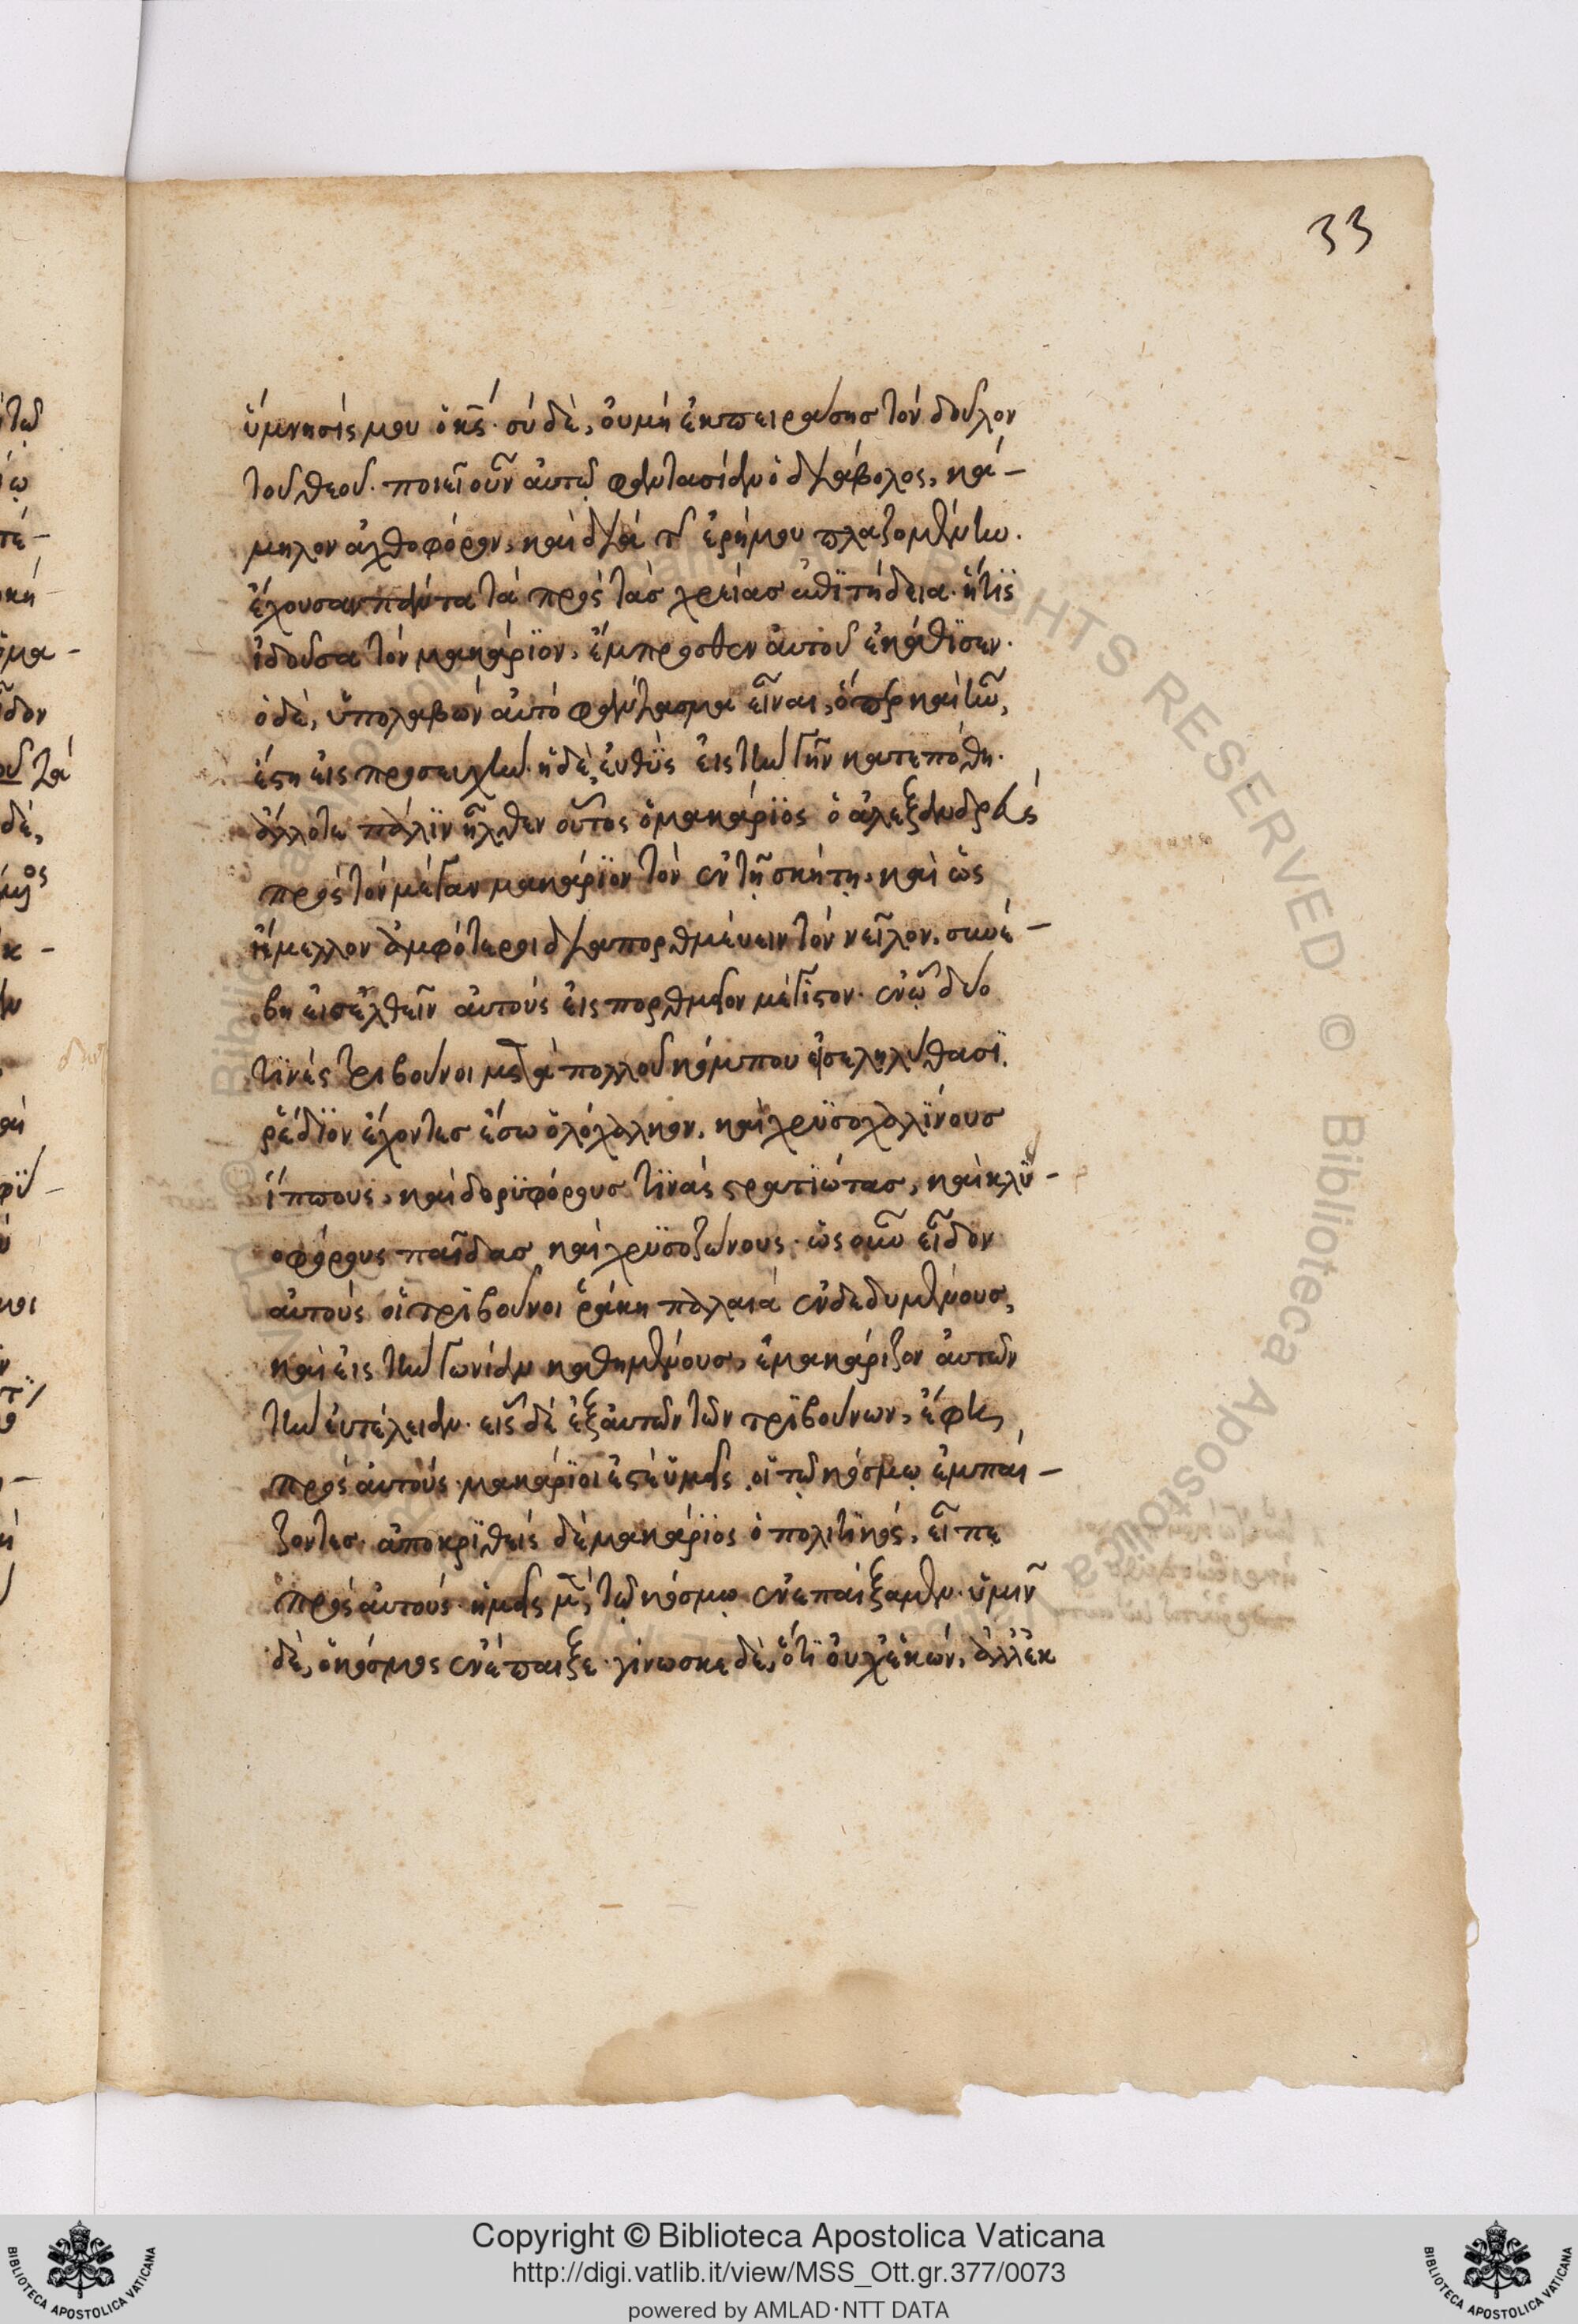 33
ὕμνησίς μου ὁ κς· σὺ δὲ, οὐ μὴ ἐκπειράσησ τὸν δοῦλον
τοῦ θεοῦ. ποιεῖ οὖν αὐτῷ φαντασίαν ὁ διάβολος, κά-
μηλον ἀχθοφόρον, καὶ διὰ τῆς ἐρήμου πλαζομένην.
ἔχουσαν πάντα τὰ πρὸς τὰσ χρείασ ἐπϊτήδεια· ἥτϊς
ἰδοῦσα τὸν μακάρϊον, ἔμπροσθεν αὐτοῦ ἐκάθϊσεν.
ὁ δὲ, ὑπολαβὼν αὐτὸ φάντασμα εἶναι, ὅπερ καὶ ἦν,
ἔστη εἰς προσευχήν. ἡ δὲ, εὐθϋς εἰς τὴν γῆν κατεπόθη.
ἄλλοτε πάλϊν ἦλθεν οὗτος ὁ μακάρϊος ὁ ἀλεξανδρεὺς
πρὸς τὸν μέγαν μακάρϊον τὸν ἐν τῇ σκήτῃ, καὶ ὡς
ἤμελλον ἀμφότεροι διαπορθμεύειν τὸν νεῖλον, συνέ-
βη εἰσελθεῖν αὐτοὺς εἰς πορθμεῖον μέγιστον. ἐν ᾧ δύο
τϊνὲς τριβοῦνοι μετὰ πολλοῦ κόμπου εἰσεληλύθασϊ.
ῥέδϊον ἔχοντεσ ἔσω ὁλόχαλκον, καὶ χρϋσοχαλίνουσ
ἵππους, καὶ δορϋφόρουσ τϊνὰς στρατϊώτασ, καὶ κλϋ-
οφόρους παῖδασ καὶ χρϋσοζώνους. ὡς οὖν εἶδον
αὐτοὺς οἱ τρϊβοῦνοι ῥάκη παλαιὰ ἐνδεδυμένουσ,
καὶ εἰς τὴν γωνίαν καθημένουσ, ἐμακάριζον αὐτῶν
τὴν εὐτέλειαν. εἷς δὲ ἐξ αὐτῶν τῶν τρϊβούνων, ἔφη
πρὸς αὐτούς· μακάρϊοι ἐστὲ ὑμεῖς οἱ τῷ κόσμῳ ἐμπαί-
ζοντεσ. ἀποκρϊθεὶς δὲ μακάρϊος ὁ πολιτϊκὸς, εἶπε
πρὸς αὐτούς· ἡμεῖς μὲν τῷ κόσμῳ ἐνεπαίξαμεν. ὑμῖν
δὲ, ὁ κόσμος ἐνέπαιξε· γίνωσκε δὲ, ὅτϊ οὐχ ἑκὼν, ἀλλ' ἐκ
Copyright © Biblioteca Apostolica Vaticana
http://digi.vatlib.it/view/MSS_Ott.gr.377/0073
powered by AMLAD·NTT DATA